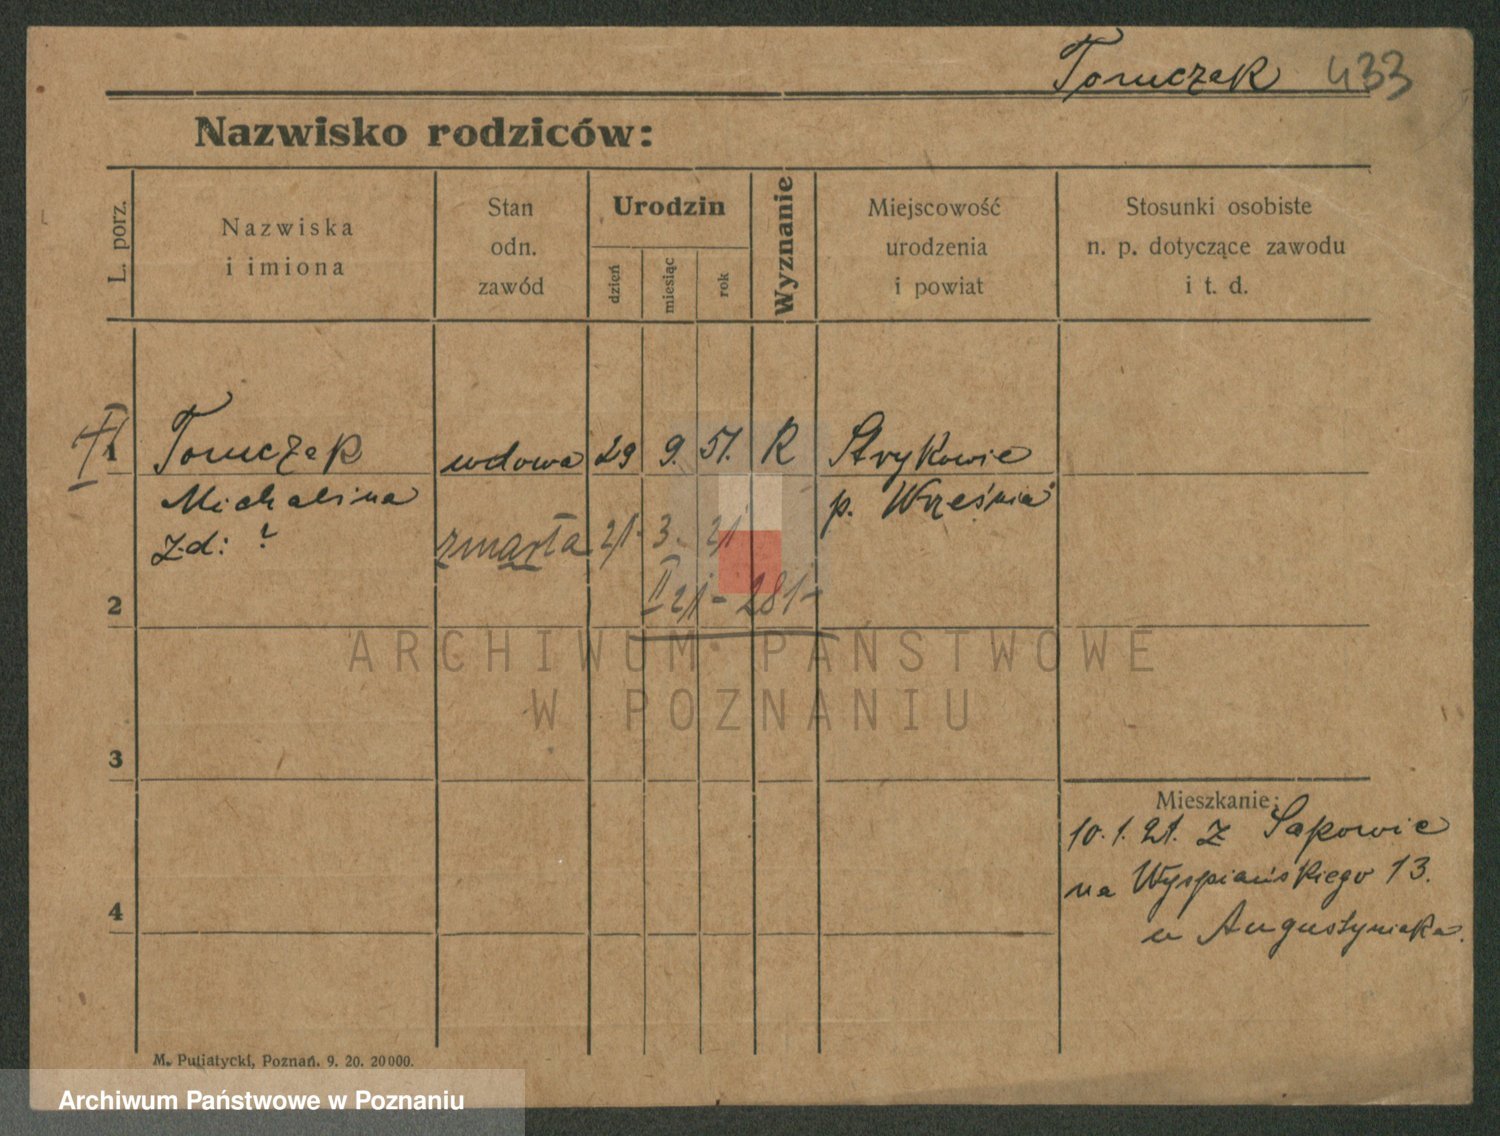 Tomczak 433
Nazwisko rodziców:
L. porz.
Nazwiska
i imiona
Stan
odn.
zawód
Urodzin
dzień
miesiąc
rok
Wyznanie
Miejscowość
urodzenia
i powiat
Stosunki osobiste
n. p. dotyczące zawodu
i t. d.
1 Tomczak wdowa 29 9. 51. R Strykowie
Michalina p. Września
z d: ?
zmarła 21. 3. 21
II 21 - 281 -
2
3
4
Mieszkanie:
10. 1. 21. z Sapowic
na Wyspiańskiego 13.
u Augustyniaka.
M. Putiatycki, Poznań. 9. 20. 20000.
ARCHIWUM PAŃSTWOWE
W POZNANIU
Archiwum Państwowe w Poznaniu